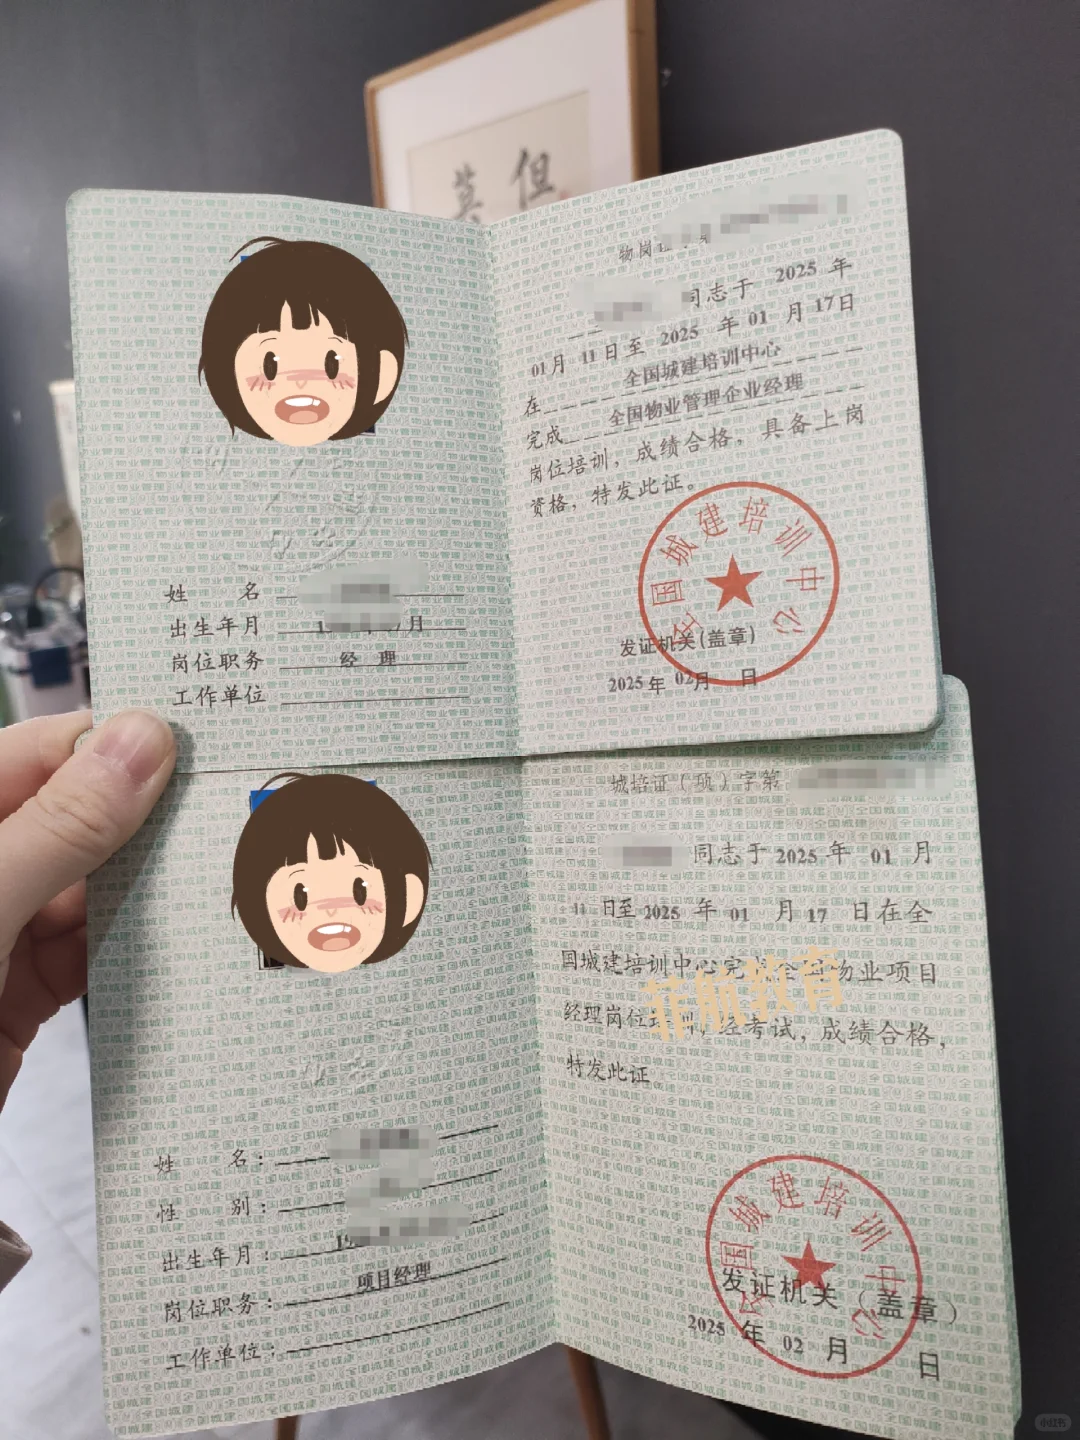 莫 但
物岗证
同志于 2025 年
01月 11日至 2025 年 01 月 17日
在 全国城建培训中心
完成 全国物业管理企业经理
岗位培训，成绩合格，具备上岗
资格，特发此证。
全国城建培训中心
发证机关(盖章)
2025年 02月 日
姓 名
出生年月 月
岗位职务 经 理
工作单位
城培证（项）字第
同志于 2025 年 01 月
11 日至 2025 年 01 月 17 日在全
国城建培训中心完成全国物业项目
经理岗位培训，经考试，成绩合格，
特发此证
菲航教育
全国城建培训中心
发证机关（盖章）
2025 年 02 月 日
姓 名：
性 别：
出生年月：
岗位职务： 项目经理
工作单位：
小红书